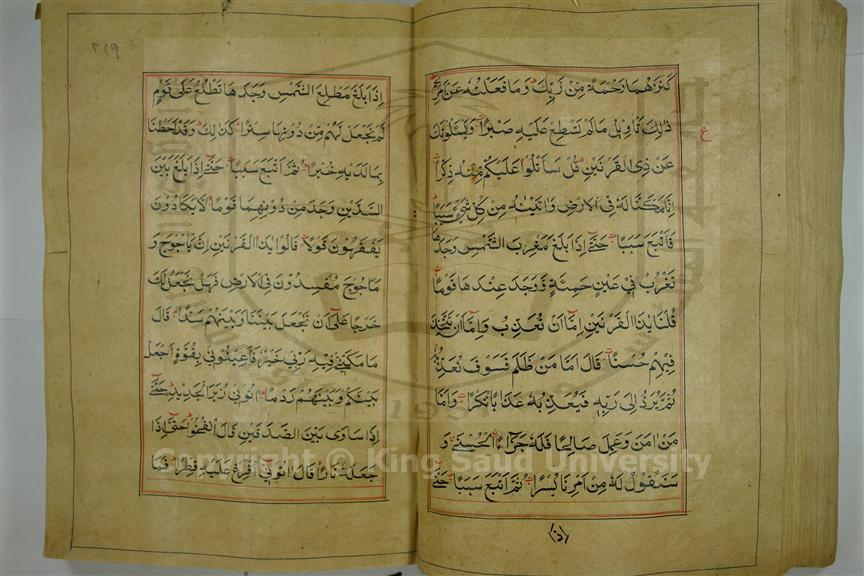 كنزهما رحمة من ربك وما فعلته عن امري
ذلك تاويل مالم تسطع عليه صبرا ويسئلونك
عن ذي القرنين قل ساتلوا عليكم منه ذكرا
انا مكنا له في الارض واتينه من كل شئ سببا
فاتبع سببا حتى اذا بلغ مغرب الشمس وجدها
تغرب في عين حمئة ووجد عندها قوما
قلنا يذا القرنين اما ان تعذب واما ان تتخذ
فيهم حسنا قال اما من ظلم فسوف نعذبه
ثم يرد الى ربه فيعذبه عذابا نكرا واما
من امن وعمل صالحا فله جزاء الحسنى و
سنقول له من امرنا يسرا ثم اتبع سببا حتى
اذا
ع
اذا بلغ مطلع الشمس وجدها تطلع على قوم
لم نجعل لهم من دونها سترا كذلك وقد احطنا
بما لديه خبرا ثم اتبع سببا حتى اذا بلغ بين
السدين وجد من دونهما قوما لا يكادون
يفقهون قولا قالوا يذا القرنين ان ياجوج و
ماجوج مفسدون في الارض فهل نجعل لك
خرجا على ان تجعل بيننا وبينهم سدا قال
ما مكني فيه ربي خير فاعينوني بقوة اجعل
بينكم وبينهم ردما اتوني زبر الحديد حتى
اذا ساوى بين الصدفين قال انفخوا حتى اذا
جعله نارا قال اتوني افرغ عليه قطرا فما
Copyright © King Saud University